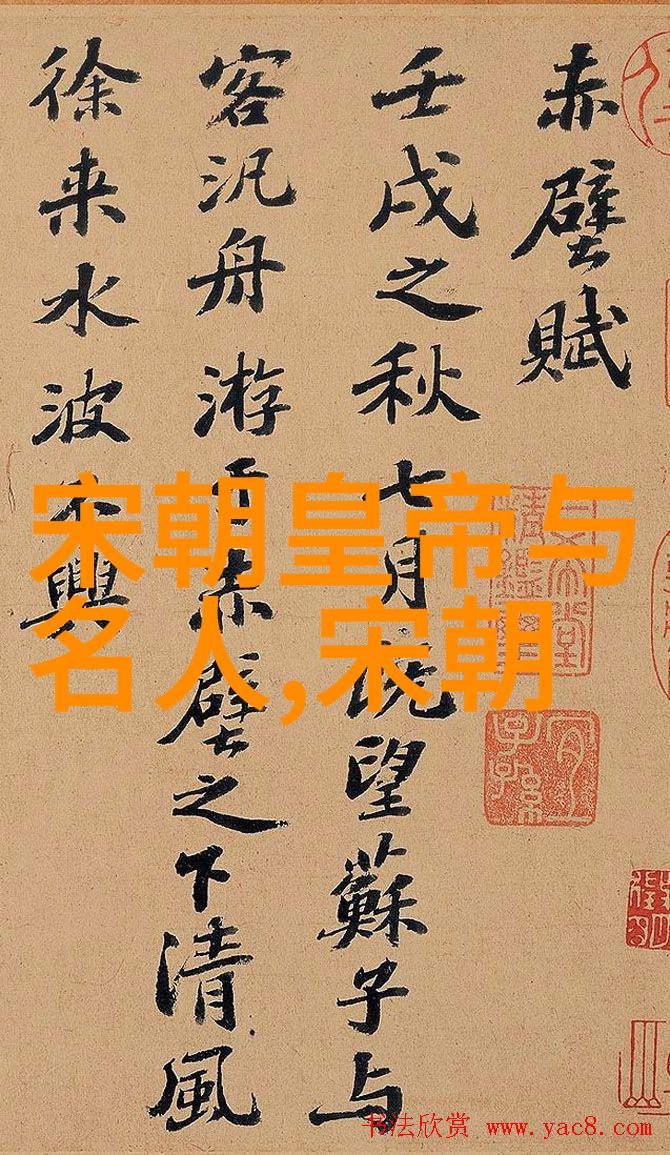 赤壁賦
壬戌之秋七月既望蘇子与
客汎舟游于赤壁之下清風
徐来水波不興
宋朝皇帝与
名人,宋朝
书法欣赏 www.yac8.com